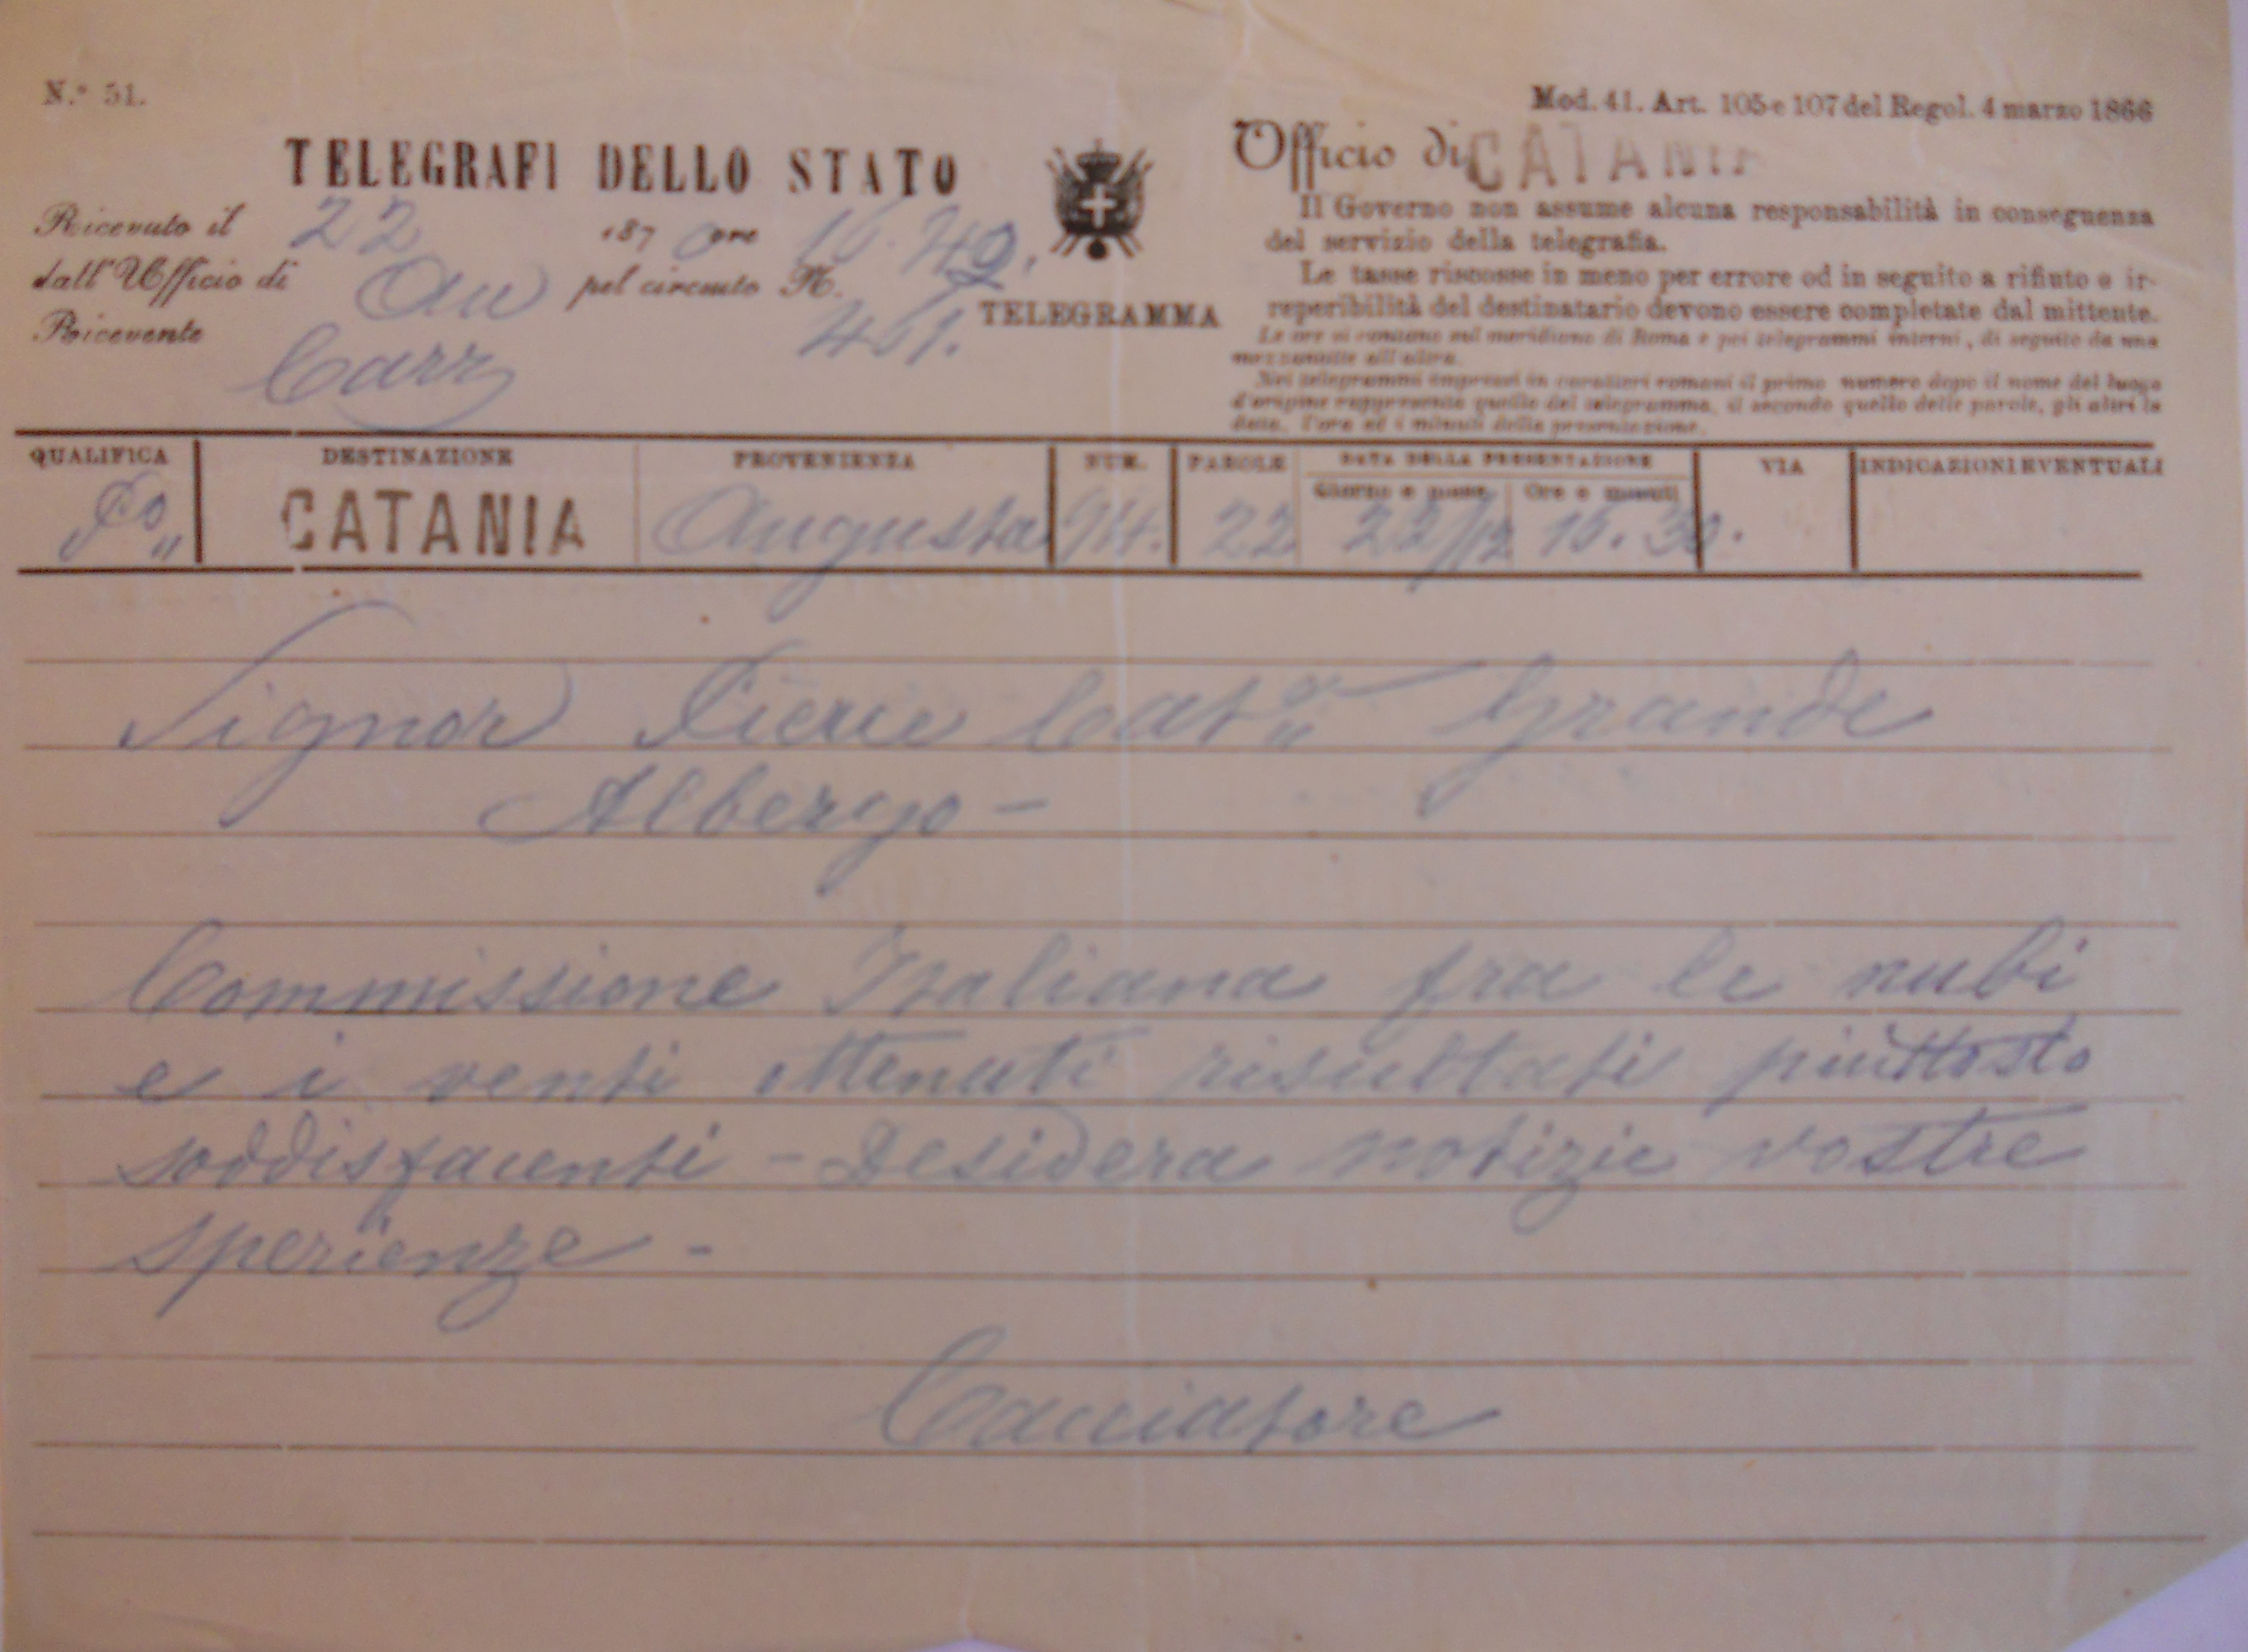 N.º 51.
Mod. 41. Art. 105 e 107 del Regol. 4 marzo 1866
TELEGRAFI DELLO STATO
Ufficio di CATANIA
Ricevuto il 22 1870 ore 16.
dall'Ufficio di Au pel circuito N.
Ricevente Carz
TELEGRAMMA
Il Governo non assume alcuna responsabilità in conseguenza
del servizio della telegrafia.
Le tasse riscosse in meno per errore od in seguito a rifiuto o ir-
reperibilità del destinatario devono essere completate dal mittente.
Le ore si contano sul meridiano di Roma e pei telegrammi interni, di seguito da una
mezzanotte all'altra.
Nei telegrammi impressi in caratteri romani il primo numero dopo il nome del luogo
d'origine rappresenta quello del telegramma, il secondo quello delle parole, gli altri la
data, l'ora ed i minuti della presentazione.
QUALIFICA DESTINAZIONE PROVENIENZA NUM. PAROLE DATA DELLA PRESENTAZIONE VIA INDICAZIONI EVENTUALI
Giorno e mese Ore e minuti
CATANIA Augusta 94. 22 22/12 15.30.
Signor Pierce Grande
Albergo -
Commissione Italiana fra le nubi
e i venti ottenuti risultati piuttosto
soddisfacenti - Desidera notizie vostre
sperienze -
Cacciatore